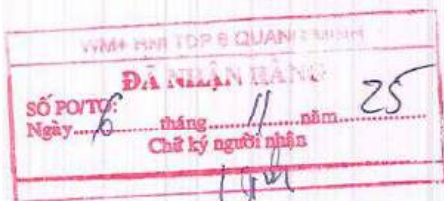 WM+ HNI TDP 8 QUANG MINH
ĐÃ NHẬN HÀNG
SỐ PO/TO:
Ngày 6 tháng 11 năm 25
Chữ ký người nhận